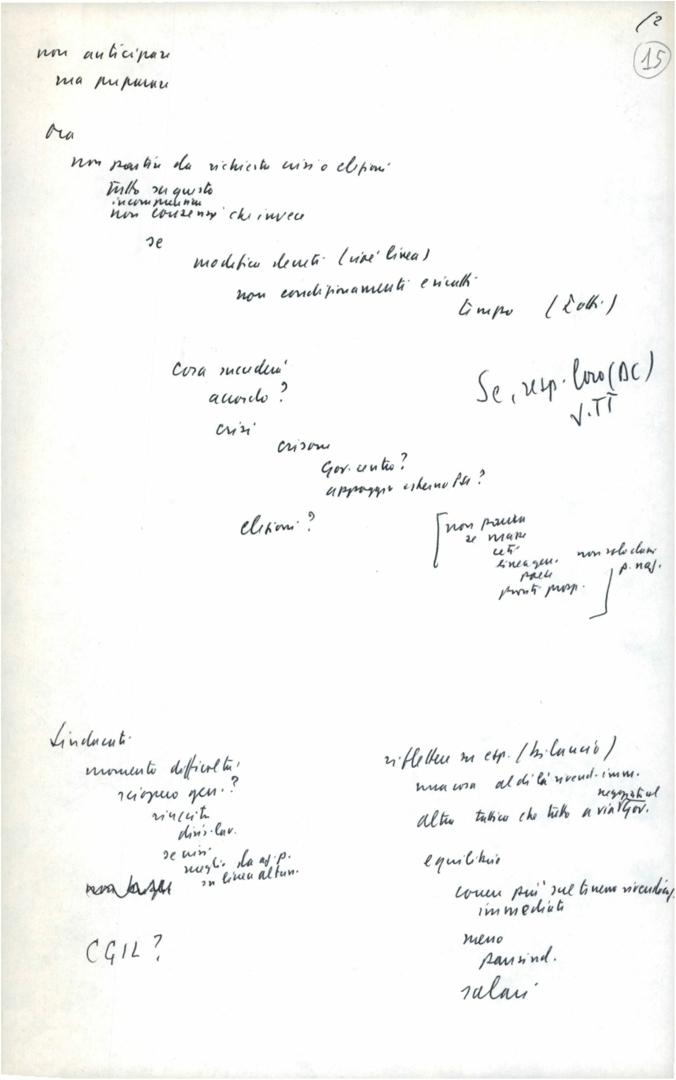 12
15
non anticipare
ma preparare
Ora
non partire da richiesta crisi o elezioni
tutto su questo
incomprensioni
non consensi che invece
se
modifica decreti (cioè linea)
non condizionamenti e ricatti
tempo (Zotti)
Cosa succederà
accordo?
Se, resp. loro (DC)
V.TT
crisi
crisone
Gov. centro?
appoggio esterno Psi?
elezioni?
non paura
se mare
ceti
linea gen.
pace
pronti prosp.
non solo
p. naz.
Sindacati
momento difficoltà,
sciopero gen.?
riuscita
divis. lav.
se crisi
meglio da az. p.
su linea altern.
CGIL?
riflettere su esp. (bilancio)
una cosa al di là rivend. imm.
negoziati col
altra tattica che tutto avvia Gov.
equilibrio
correre più sul tireno rivendicaz.
immediati
meno
pansind.
salari